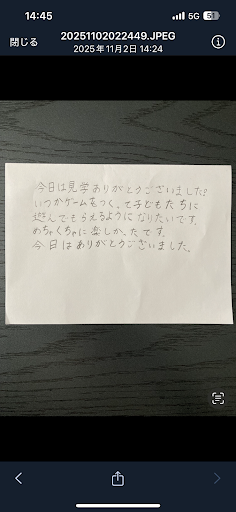 14:45
5G 51
閉じる
20251102022449.JPEG
2025年11月2日 14:24
今日は見学ありがとうございました!
いつかゲームをつくって子どもたちに
遊んでもらえるようになりたいです。
めちゃくちゃに楽しかったです。
今日はありがとうございました。